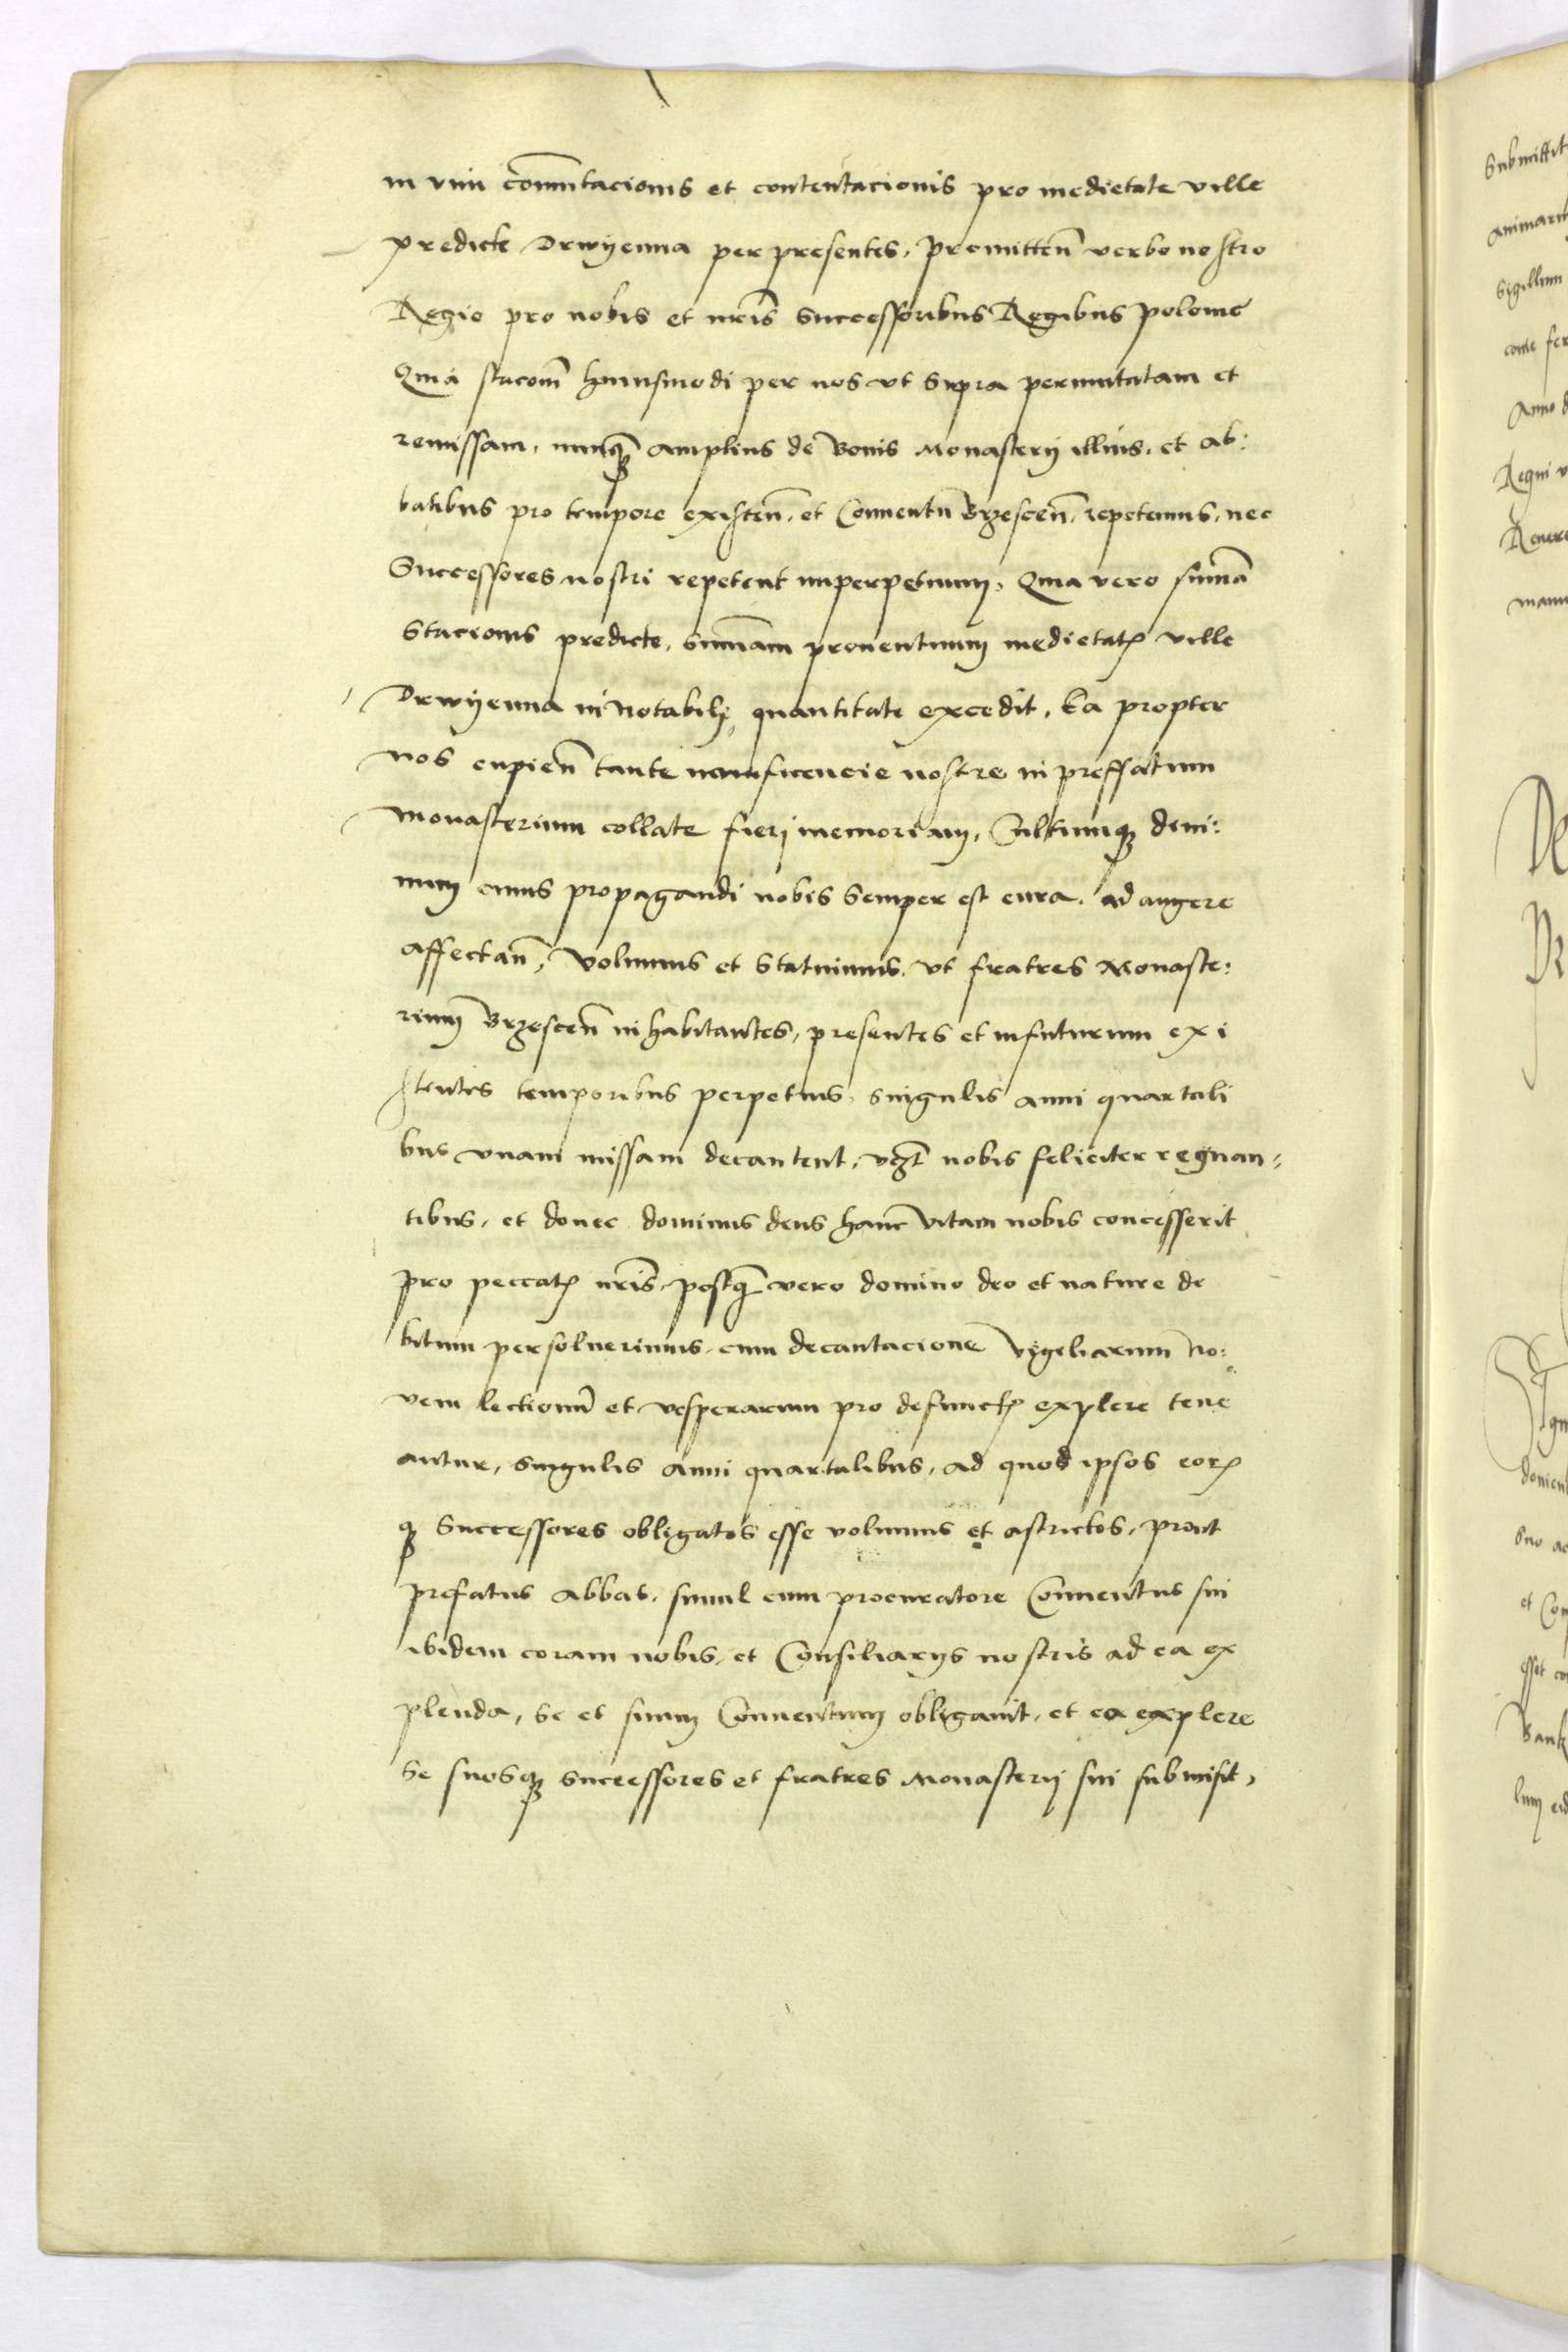 in vim com̄utacionis et contentacionis pro medietate ville
predicte Drwyenna per presentes, promitten̄ verbo nostro
Regio pro nobis et nr̄is Successoribus Regibus polonie
Quia stacōm huiusmodi per nos vt supra permutatam et
remissam, nunqꝫ amplius de Bonis Monasterij illius, et ab:
batibus pro tempore existen̄, et Conuentu Brzescen̄, repetemus, nec
Successores nostri repetent imperpetuum, Quia vero sum̄a
Stacionis predicte, sum̄am prouentuum medietatꝭ ville
Drwyenna in notabili quantitate excedit, Ea propter
nos cupien̄ tante munificencie nostre in preffatum
monasterium collate fieri memoriam, Cultumqꝫ diui:
num cuius propagandi nobis semper est cura, adaugere
affectan̄, volumus et statuimus, vt fratres Monaste:
rium Brzescen̄ inhabitantes, presentes et infuturum exi
stentes temporibus perpetuis, singulis anni quartali
bus vnam missam decantent, vꝫt nobis feliciter regnan=
tibus, et donec dominus deus hanc vitam nobis concesserit
pro peccatꝭ nr̄is, postqꝫ vero domino deo et nature de
bitum persoluerimus, cum decantacione vigiliarum No:
vem lectionū et vesperarum pro defunctꝭ explere tene
antur, singulis anni quartalibus, ad quod ipsos eorꝫ
qꝫ Successores obligatos esse volumus et astrictos, prout
prefatus Abbas, simul cum procuratore Conuentus sui
ibidem coram nobis, et Consiliarijs nostris ad ea ex
plenda, se et suum Conuentum obligauit, et ea explere
se suosqꝫ successores et fratres Monasterij sui submisit,
Submittit
sigillum
Anno
Regni